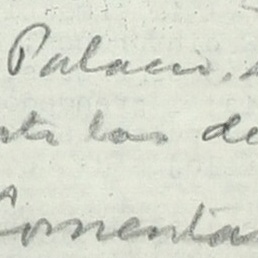 Palacio,
las de
Comenta